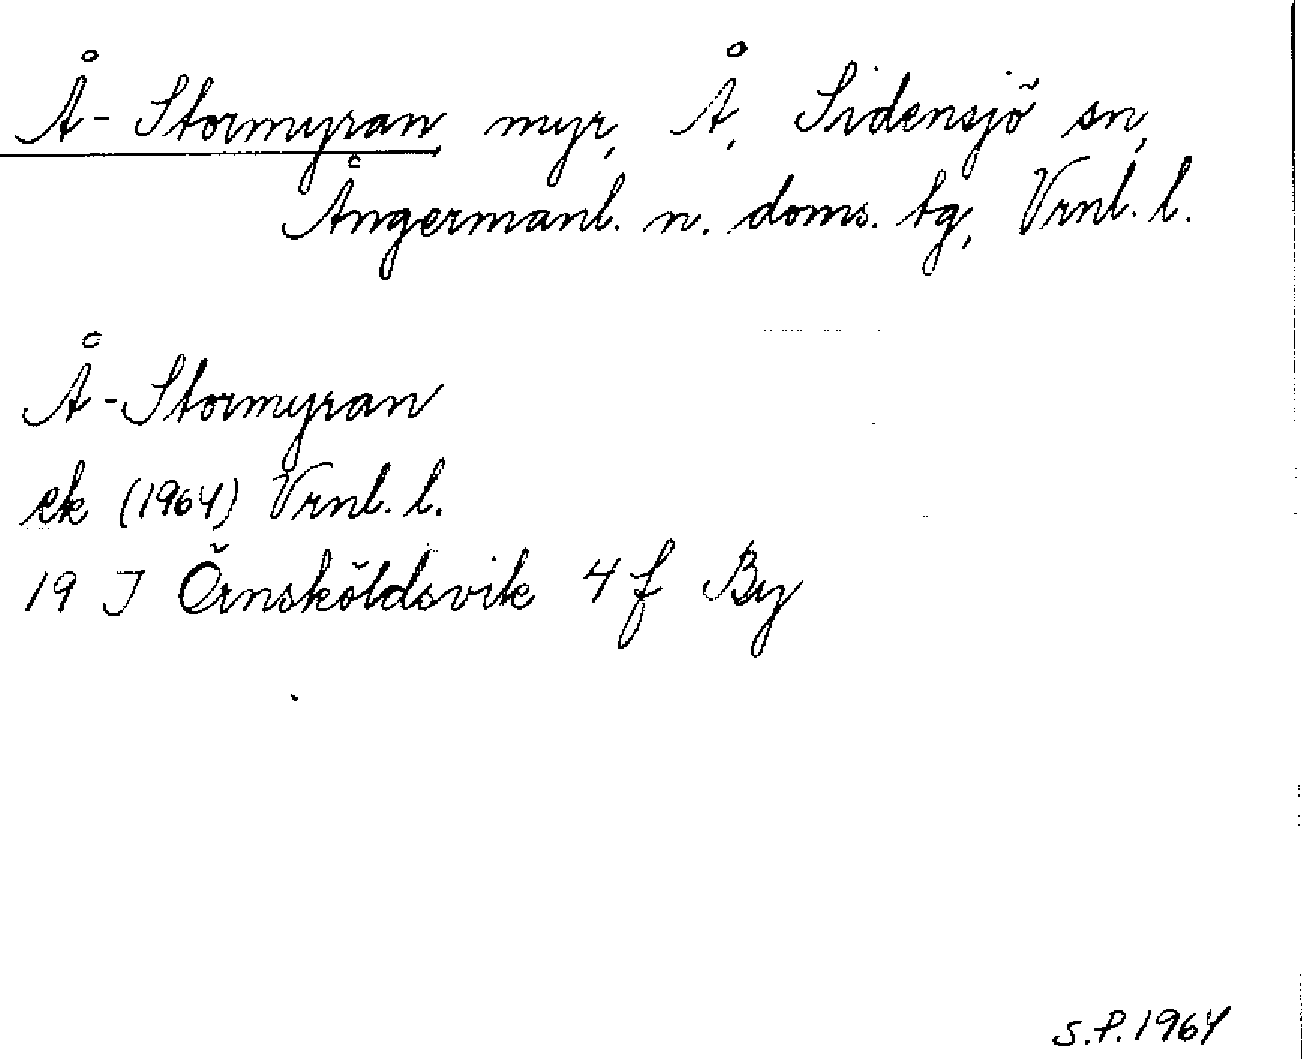 Å-Stormyran myr, Å, Sidensjö sn,
Ångermanl. n. doms. tg, Vrnl. l.
Å-Stormyran
ek (1964) Vrnl. l.
19 J Örnsköldsvik 4 f By
S.P. 1964